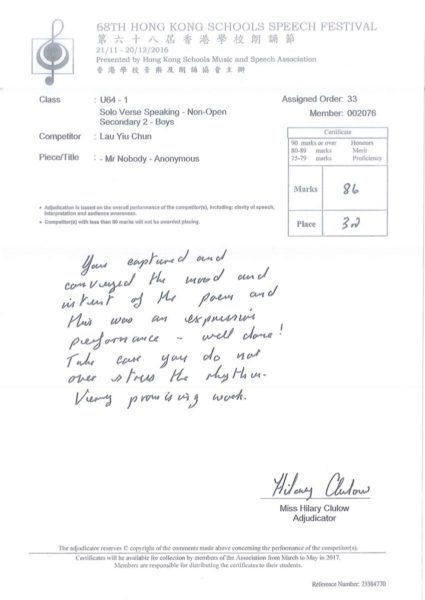 68TH HONG KONG SCHOOLS SPEECH FESTIVAL
第六十八屆香港學校朗誦節
21/11 - 20/12/2016
Presented by Hong Kong Schools Music and Speech Association
香港學校音樂及朗誦協會主辦
Class : U64 - 1
Solo Verse Speaking - Non-Open
Secondary 2 - Boys
Assigned Order: 33
Member: 002076
Competitor : Lau Yiu Chun
Piece/Title : - Mr Nobody - Anonymous
Certificate
90 marks or over Honours
80-89 marks Merit
75-79 marks Proficiency
Marks 86
Place 3rd
* Adjudication is based on the overall performance of the competitor(s), including: clarity of speech, interpretation and audience awareness.
* Competitor(s) with less than 80 marks will not be awarded placing.
You captured and
conveyed the mood and
intent of the poem and
this was an expressive
performance - well done!
Take care you do not
over stress the rhythm.
Very promising work.
Hilary Clulow
Miss Hilary Clulow
Adjudicator
The adjudicator reserves © copyright of the comments made above concerning the performance of the competitor(s).
Certificates will be available for collection by members of the Association from March to May in 2017.
Members are responsible for distributing the certificates to their students.
Reference Number: 23384770